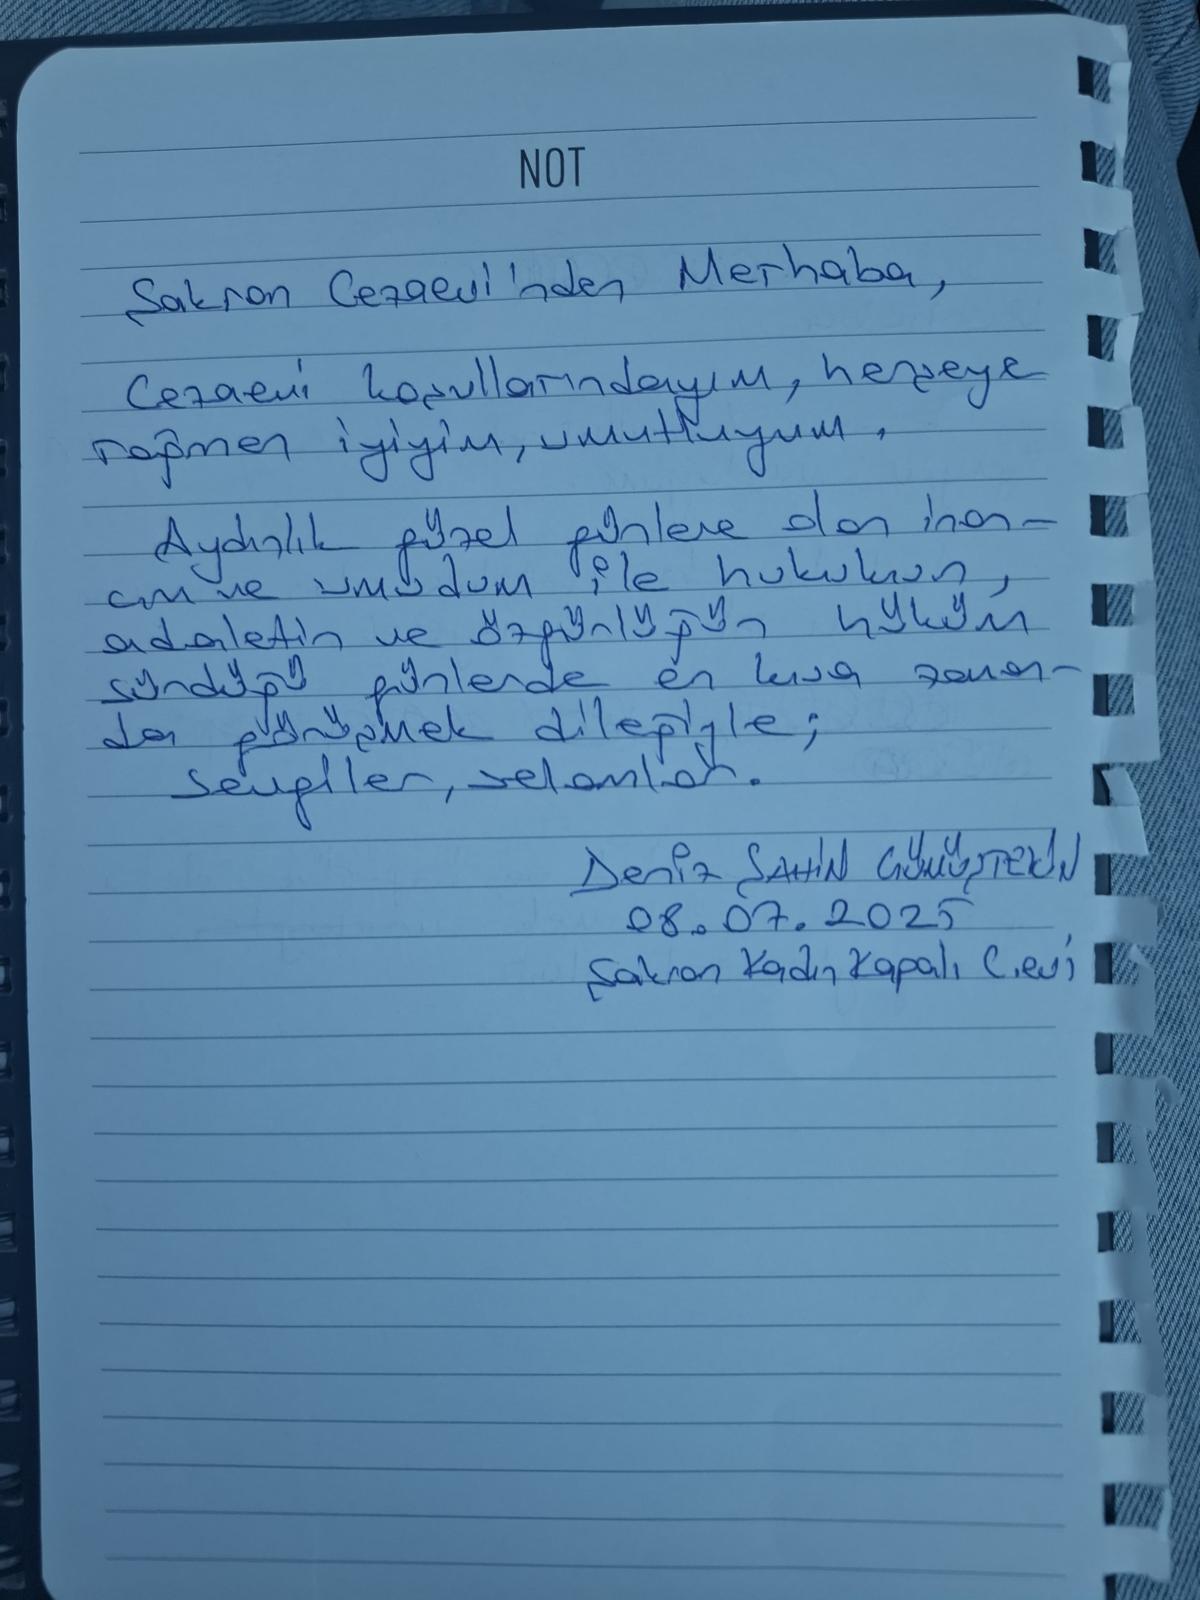 NOT
Şakran Cezaevi'nden Merhaba,
Cezaevi koşullarındayım, herşeye
rağmen iyiyim, umutluyum.
Aydınlık güzel günlere olan inan-
cım ve umudum ile hukukun,
adaletin ve özgürlüğün hüküm
sürdüğü günlerde en kısa zaman-
da görüşmek dileğiyle;
Sevgiler, selamlar.
Deniz ŞAHİN GÜMÜŞTEKİN
08.07.2025
Şakran Kadın Kapalı C.evi